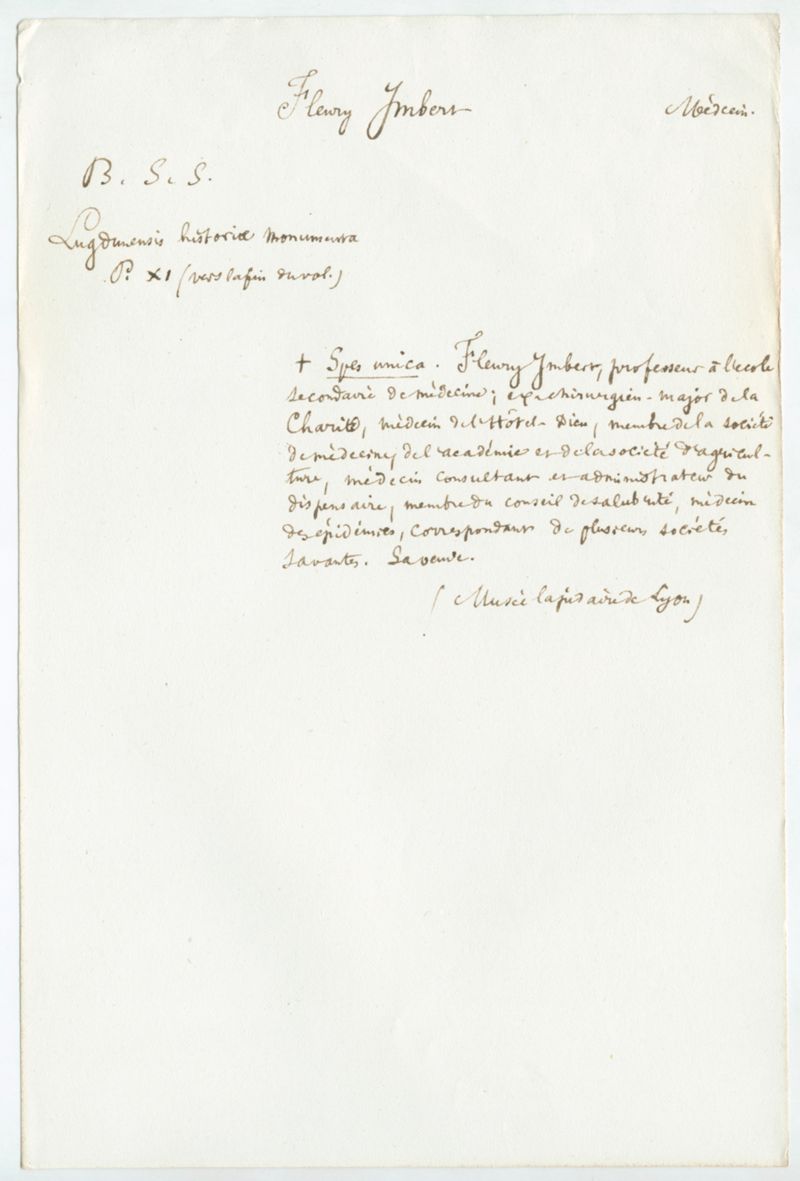 Fleury Imbert Médecin.
B. S. S.
Lugdunensis historiæ monumenta
P. XI (vers la fin du vol.)
+ Spes unica. Fleury Imbert, professeur à l'école
secondaire de médecine; ex-chirurgien-major de la
Charité, médecin de l'Hôtel-Dieu, membre de la société
de médecine, de l'académie et de la société d'agricul-
ture, médecin consultant et administrateur du
dispensaire, membre du conseil de salubrité, médecin
des épidémies, correspondant de plusieurs sociétés
savantes. Sa veuve.
(Musée lapidaire de Lyon)